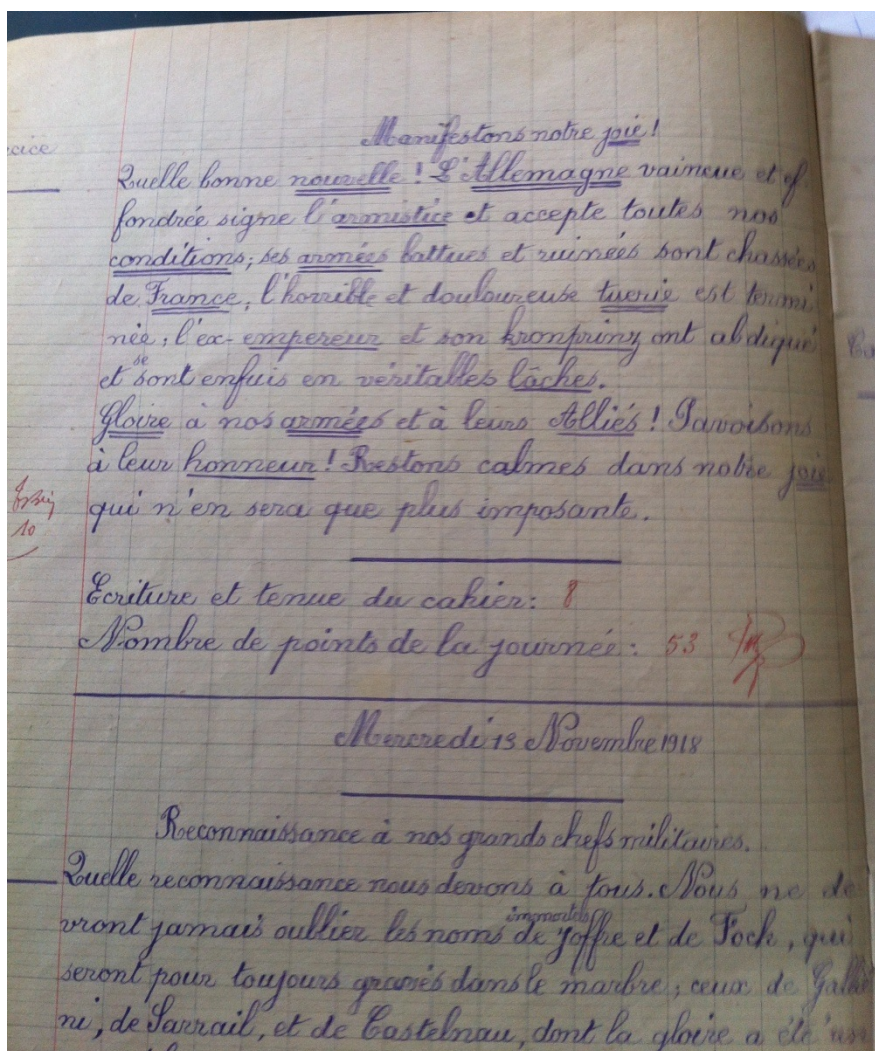 cice
Manifestons notre joie !
Quelle bonne nouvelle ! L'Allemagne vaincue et ef
fondrée signe l'armistice et accepte toutes nos
conditions ; ses armées battues et ruinées sont chassées
de France, l'horrible et douloureuse tuerie est termi
née ; l'ex-empereur et son kronprinz ont abdiqué
et se sont enfuis en véritables lâches.
Gloire à nos armées et à leurs Alliés ! Pavoisons
à leur honneur ! Restons calmes dans notre joie
qui n'en sera que plus imposante.
10
Ecriture et tenue du cahier : 8
Nombre de points de la journée : 53
Mercredi 13 Novembre 1918
Reconnaissance à nos grands chefs militaires.
Quelle reconnaissance nous devons à tous. Nous ne de
vront jamais oublier les noms immortels de Joffre et de Foch, qui
seront pour toujours gravés dans le marbre ; ceux de Gallié
ni, de Sarrail, et de Castelnau, dont la gloire a été